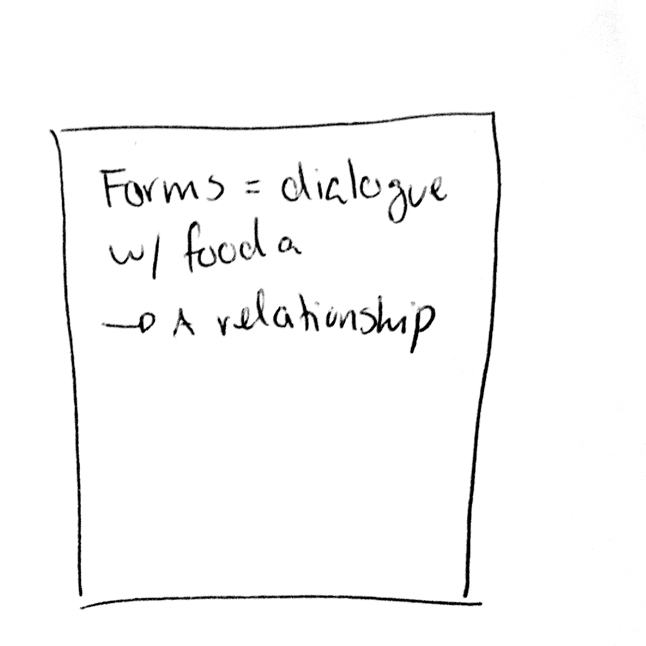 Forms = dialogue
w/ food a
→ A relationship